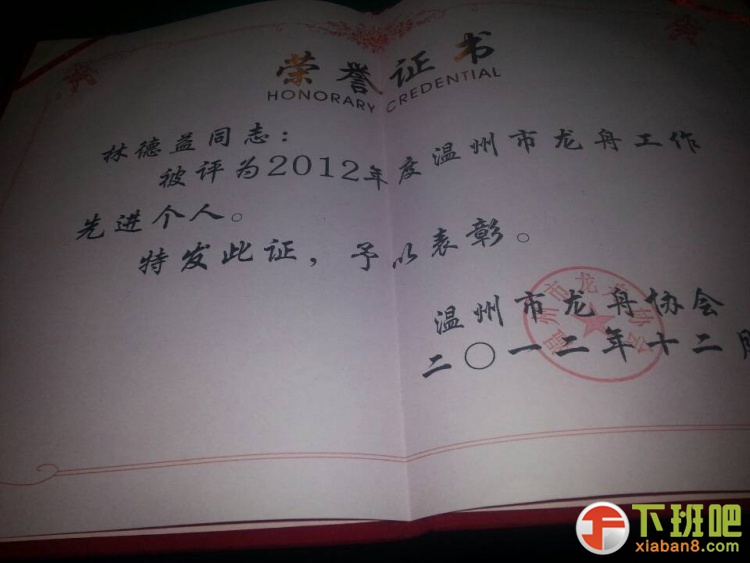 荣誉证书
HONORARY CREDENTIAL
林德益同志：
被评为2012年度温州市龙舟工作
先进个人。
特发此证，予以表彰。
温州市龙舟协会
二〇一二年十二月
下班吧
xiaban8.com